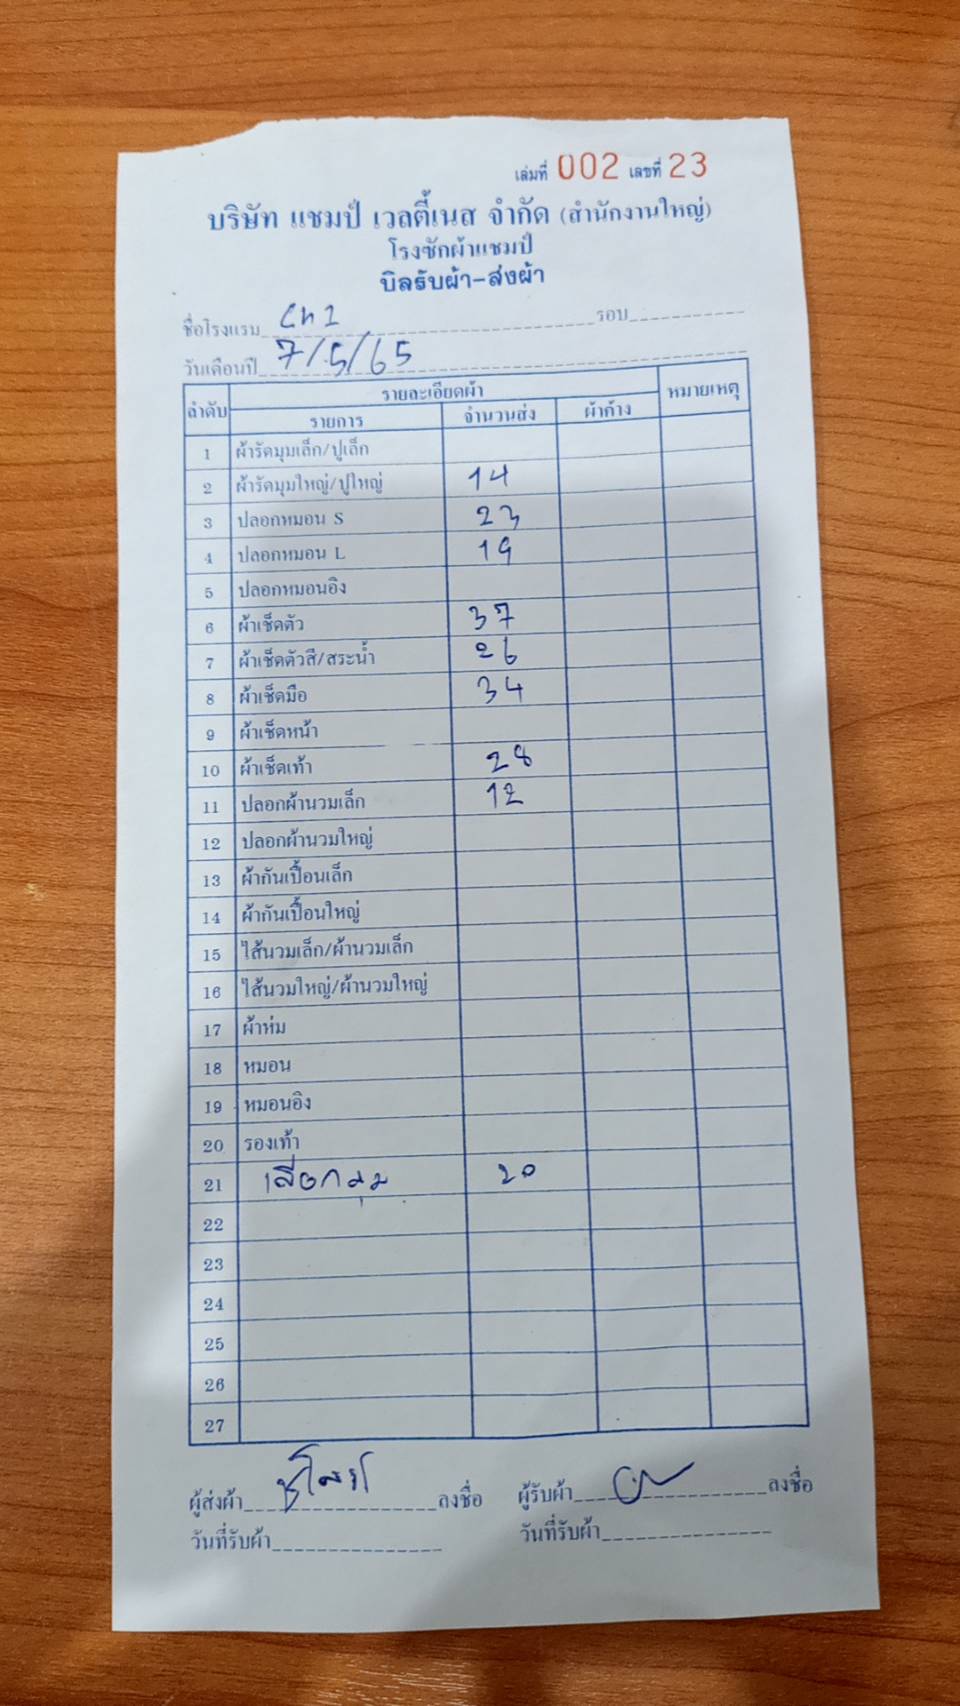 เล่มที่ 002 เลขที่ 23
บริษัท แชมป์ เวลตี้เนส จำกัด (สำนักงานใหญ่)
โรงซักผ้าแชมป์
บิลรับผ้า-ส่งผ้า
ชื่อโรงแรม Ch1 รอบ
วันเดือนปี 7/5/65
ลำดับ รายละเอียดผ้า หมายเหตุ
รายการ จำนวนส่ง ผ้าค้าง
1 ผ้ารัดมุมเล็ก/ปูเล็ก
2 ผ้ารัดมุมใหญ่/ปูใหญ่ 14
3 ปลอกหมอน S 23
4 ปลอกหมอน L 19
5 ปลอกหมอนอิง
6 ผ้าเช็ดตัว 37
7 ผ้าเช็ดตัวสี/สระน้ำ 26
8 ผ้าเช็ดมือ 34
9 ผ้าเช็ดหน้า
10 ผ้าเช็ดเท้า 28
11 ปลอกผ้านวมเล็ก 12
12 ปลอกผ้านวมใหญ่
13 ผ้ากันเปื้อนเล็ก
14 ผ้ากันเปื้อนใหญ่
15 ไส้นวมเล็ก/ผ้านวมเล็ก
16 ไส้นวมใหญ่/ผ้านวมใหญ่
17 ผ้าห่ม
18 หมอน
19 หมอนอิง
20 รองเท้า
21 20
22
23
24
25
26
27
ผู้ส่งผ้า ลงชื่อ ผู้รับผ้า ลงชื่อ
วันที่รับผ้า วันที่รับผ้า